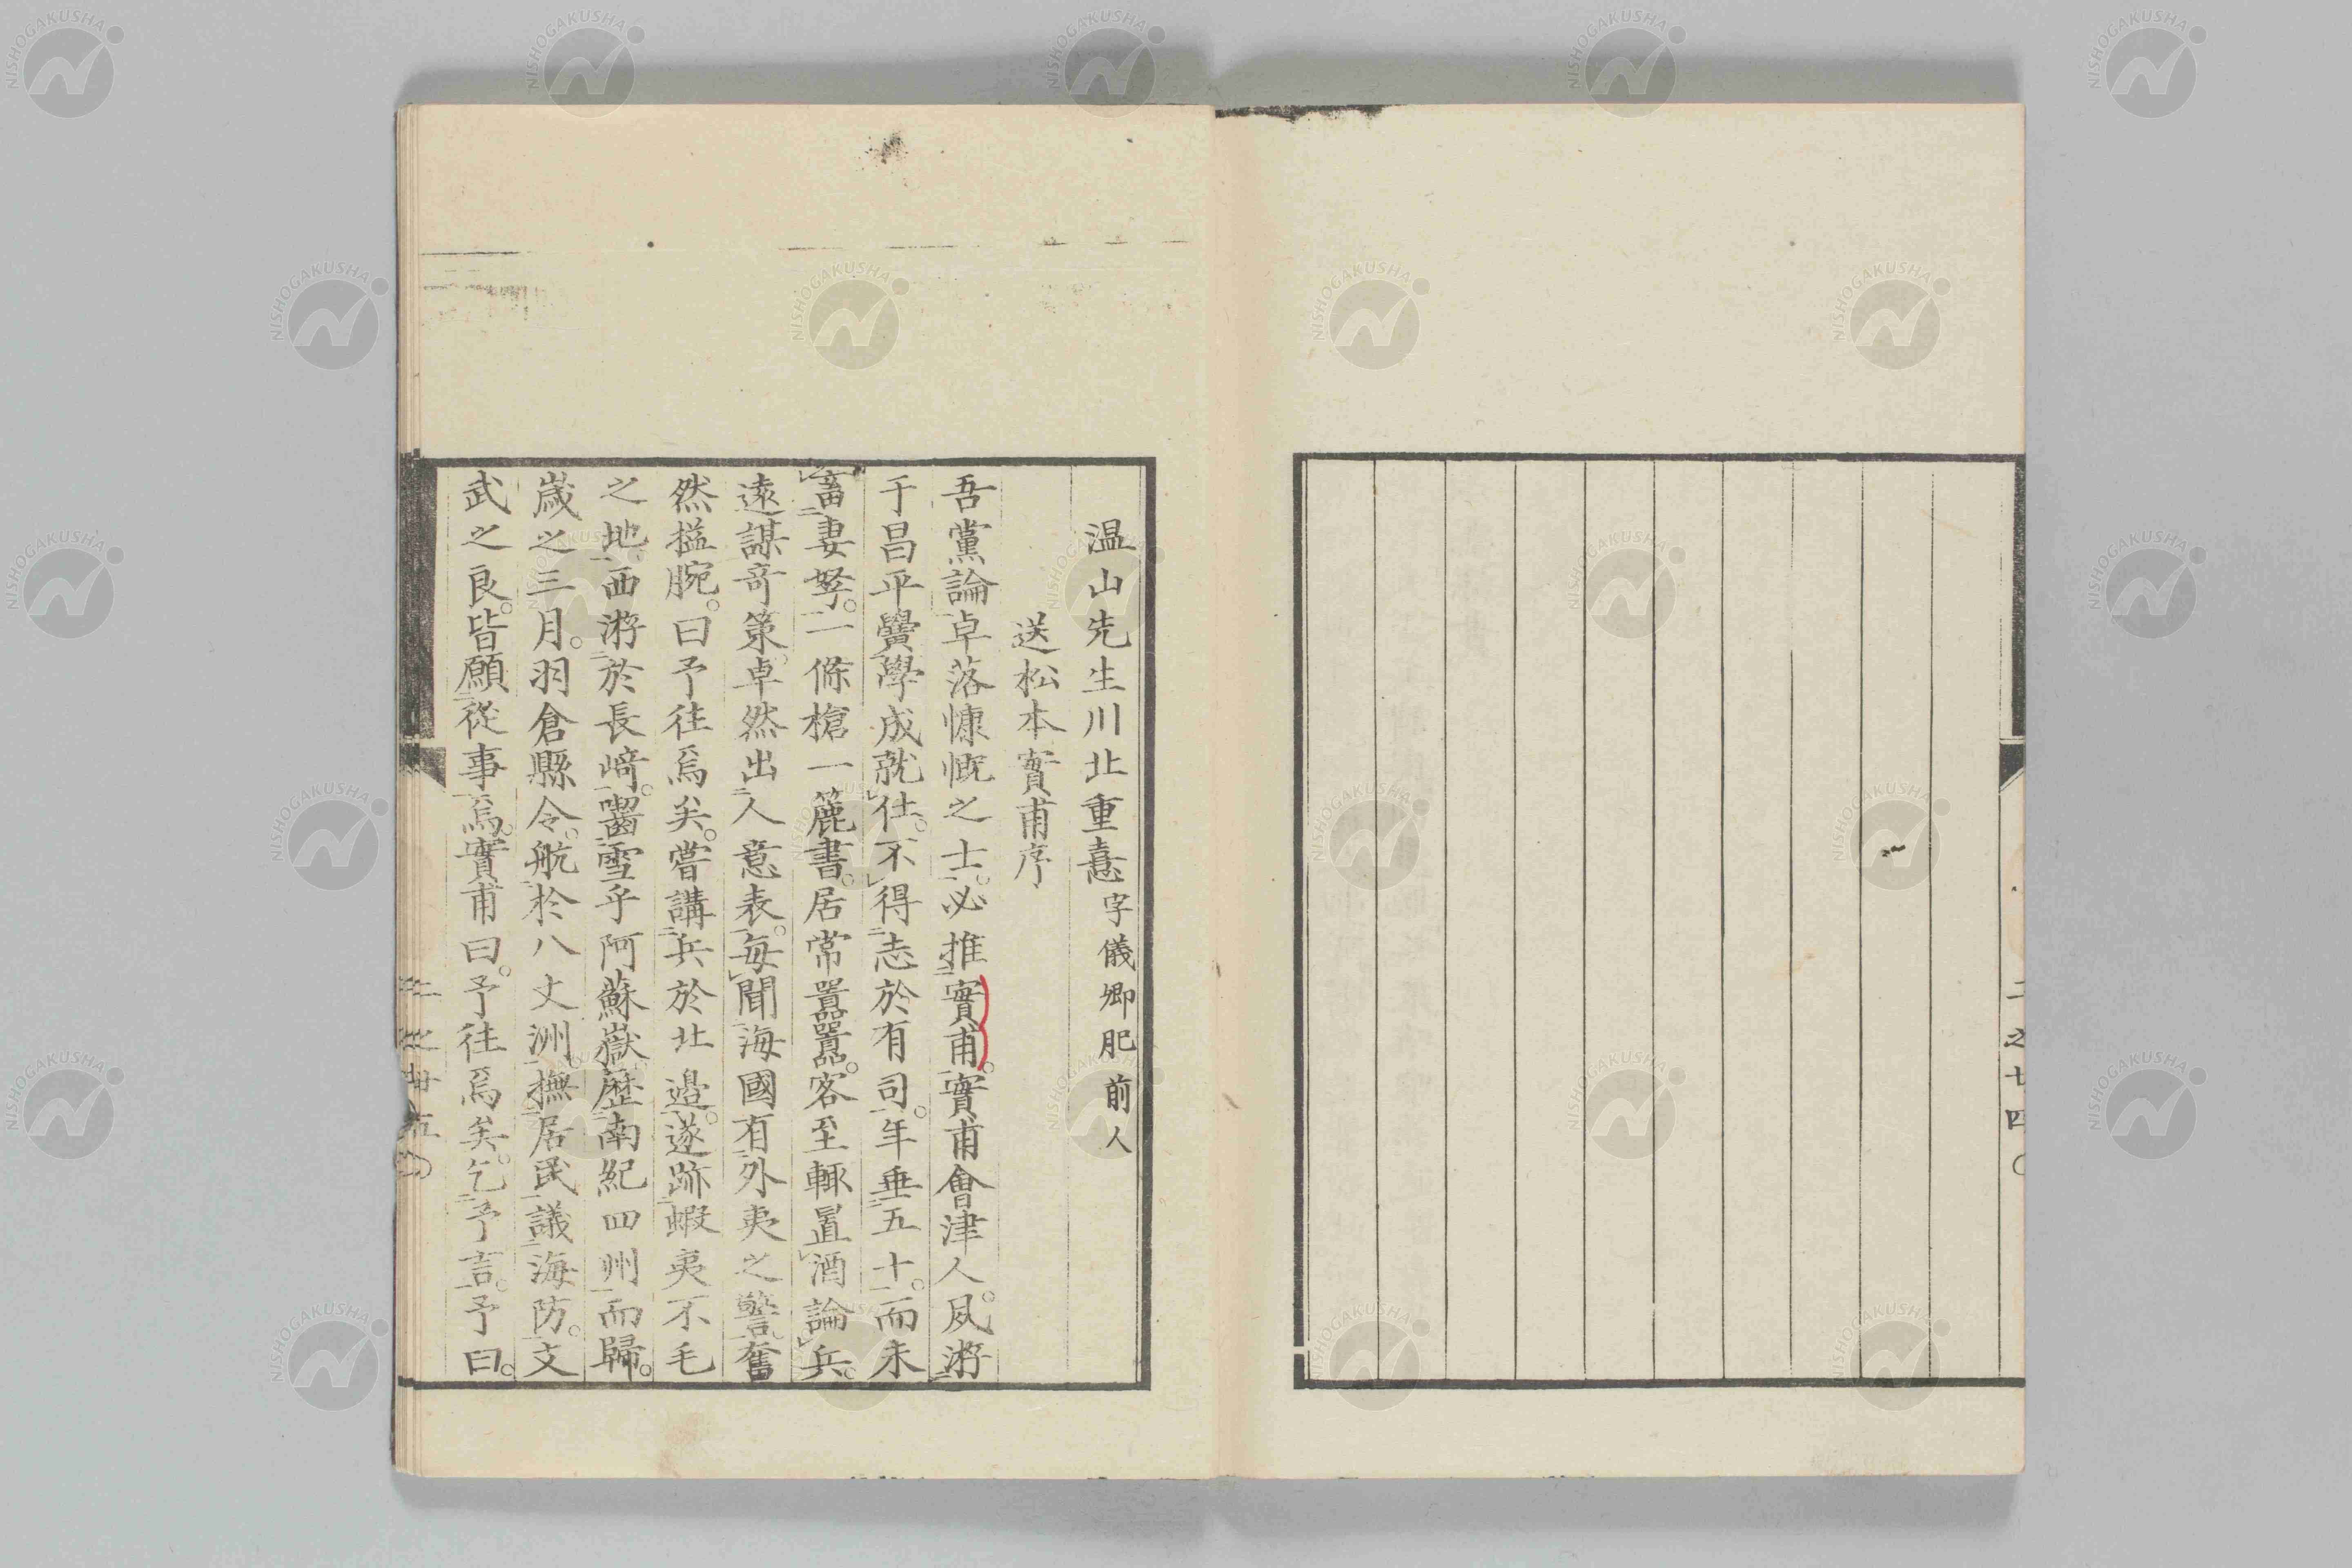 二之七四
温山先生川北重憙字儀卿肥前人
送松本實甫序
吾黨論卓落慷慨之士。必推實甫。實甫會津人。夙游
于昌平黌學成就仕。不得志於有司。年垂五十。而未
畜妻孥。一條槍一簏書。居常囂囂。客至輒置酒論兵。
遠謀奇策。卓然出人意表。每聞海國有外夷之警奮
然搤腕。曰予往焉矣。嘗講兵於北邊。遂跡蝦夷不毛
之地。西游於長﨑。囓雪乎阿蘇嶽。歷南紀四州而歸。
歲之三月。羽倉縣令。航於八丈洲。撫居民議海防。文
武之良。皆願從事焉。實甫曰。予往焉矣。乞予言。予曰。
NISHOGAKUSHA